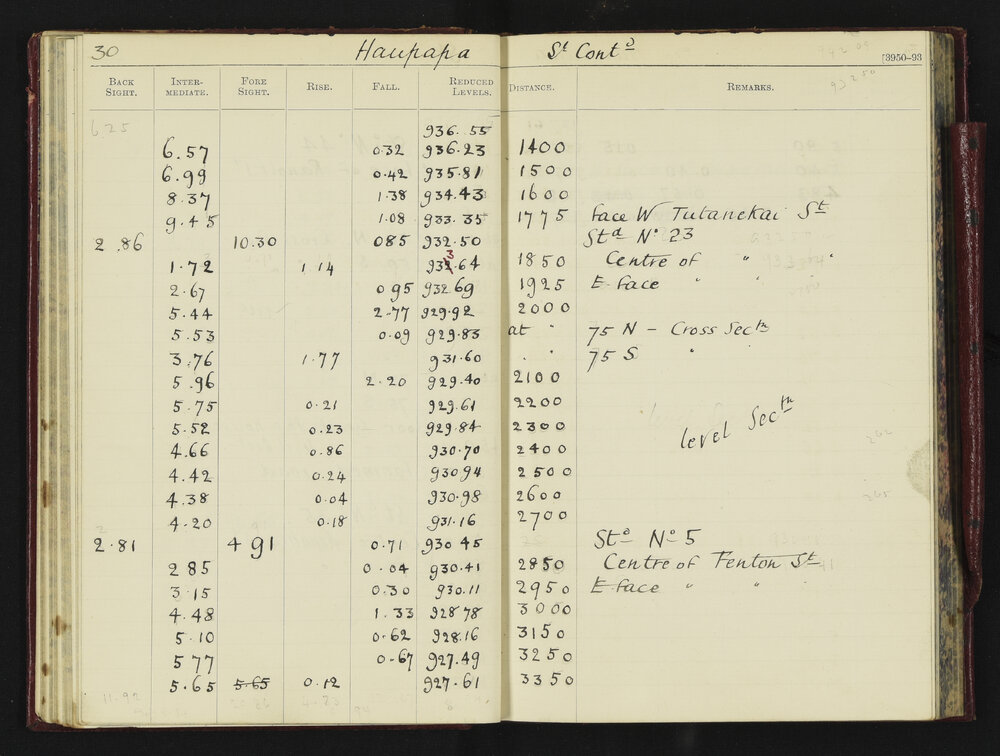 30 Haupapa St Contd
[3950–93
BACK SIGHT. INTER-MEDIATE. FORE SIGHT. RISE. FALL. REDUCED LEVELS. DISTANCE. REMARKS.
6 25 936.55
6.57 0.32 936.23 1400
6.99 0.42 935.81 1500
8.37 1.38 934.43 1600
9.45 1.08 933.35 1775 face W Tutanekai St
2.86 10.30 085 932.50 Std No 23
1.72 1.14 933.64 1850 Centre of " "
2.67 0.95 932 69 1925 E face "
5.44 2.77 929.92 2000
5.53 0.09 929.83 at " 75 N – Cross Secth
3.76 1.77 931.60 " " 75 S "
5.96 2.20 929.40 2100
5.75 0.21 929.61 2200
5.52 0.23 929.84 2300 level Secth
4.66 0.86 930.70 2400
4.42 0.24 930 94 2500
4.38 0.04 930.98 2600
4.20 0.18 931.16 2700
2.81 4 91 0.71 930 45 Std No 5
2 85 0.04 930.41 2850 Centre of Fenton St
3.15 0.30 930.11 2950 E face " "
4.48 1.33 928 78 3000
5.10 0.62 928.16 3150
5 77 0.67 927.49 3250
5.65 5.65 0.12 927.61 3350
11.92